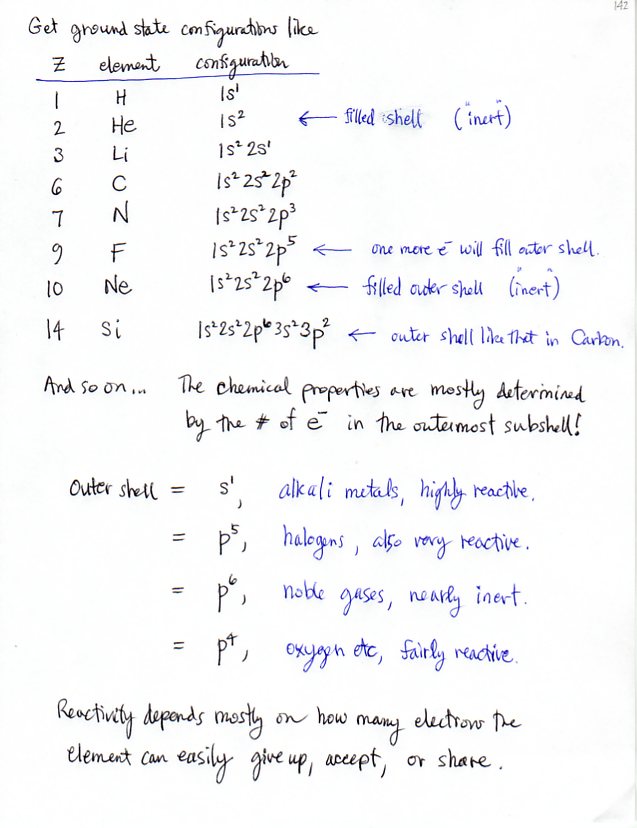 142
Get ground state configurations like
Z element configuration
1 H 1s¹
2 He 1s² ← filled shell ("inert")
3 Li 1s² 2s¹
6 C 1s² 2s² 2p²
7 N 1s² 2s² 2p³
9 F 1s² 2s² 2p⁵ ← one more e⁻ will fill outer shell.
10 Ne 1s² 2s² 2p⁶ ← filled outer shell ("inert")
14 Si 1s² 2s² 2p⁶ 3s² 3p² ← outer shell like that in Carbon.
And so on... The chemical properties are mostly determined
by the # of e⁻ in the outermost subshell!
Outer shell = s¹, alkali metals, highly reactive.
= p⁵, halogens, also very reactive.
= p⁶, noble gases, nearly inert.
= p⁴, oxygen etc, fairly reactive.
Reactivity depends mostly on how many electrons the
element can easily give up, accept, or share.